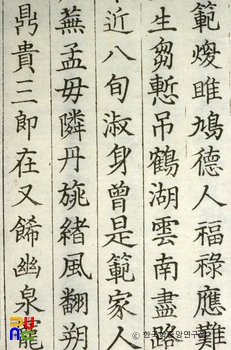 範雎鳩德人福祿應難
生芻慙吊鶴湖雲南盡路
近八旬淑身曾是範家人
蕪孟毋隣丹旐緖風翻朔
鼎貴三即在又餙幽泉寵
© 한국학중앙연구원